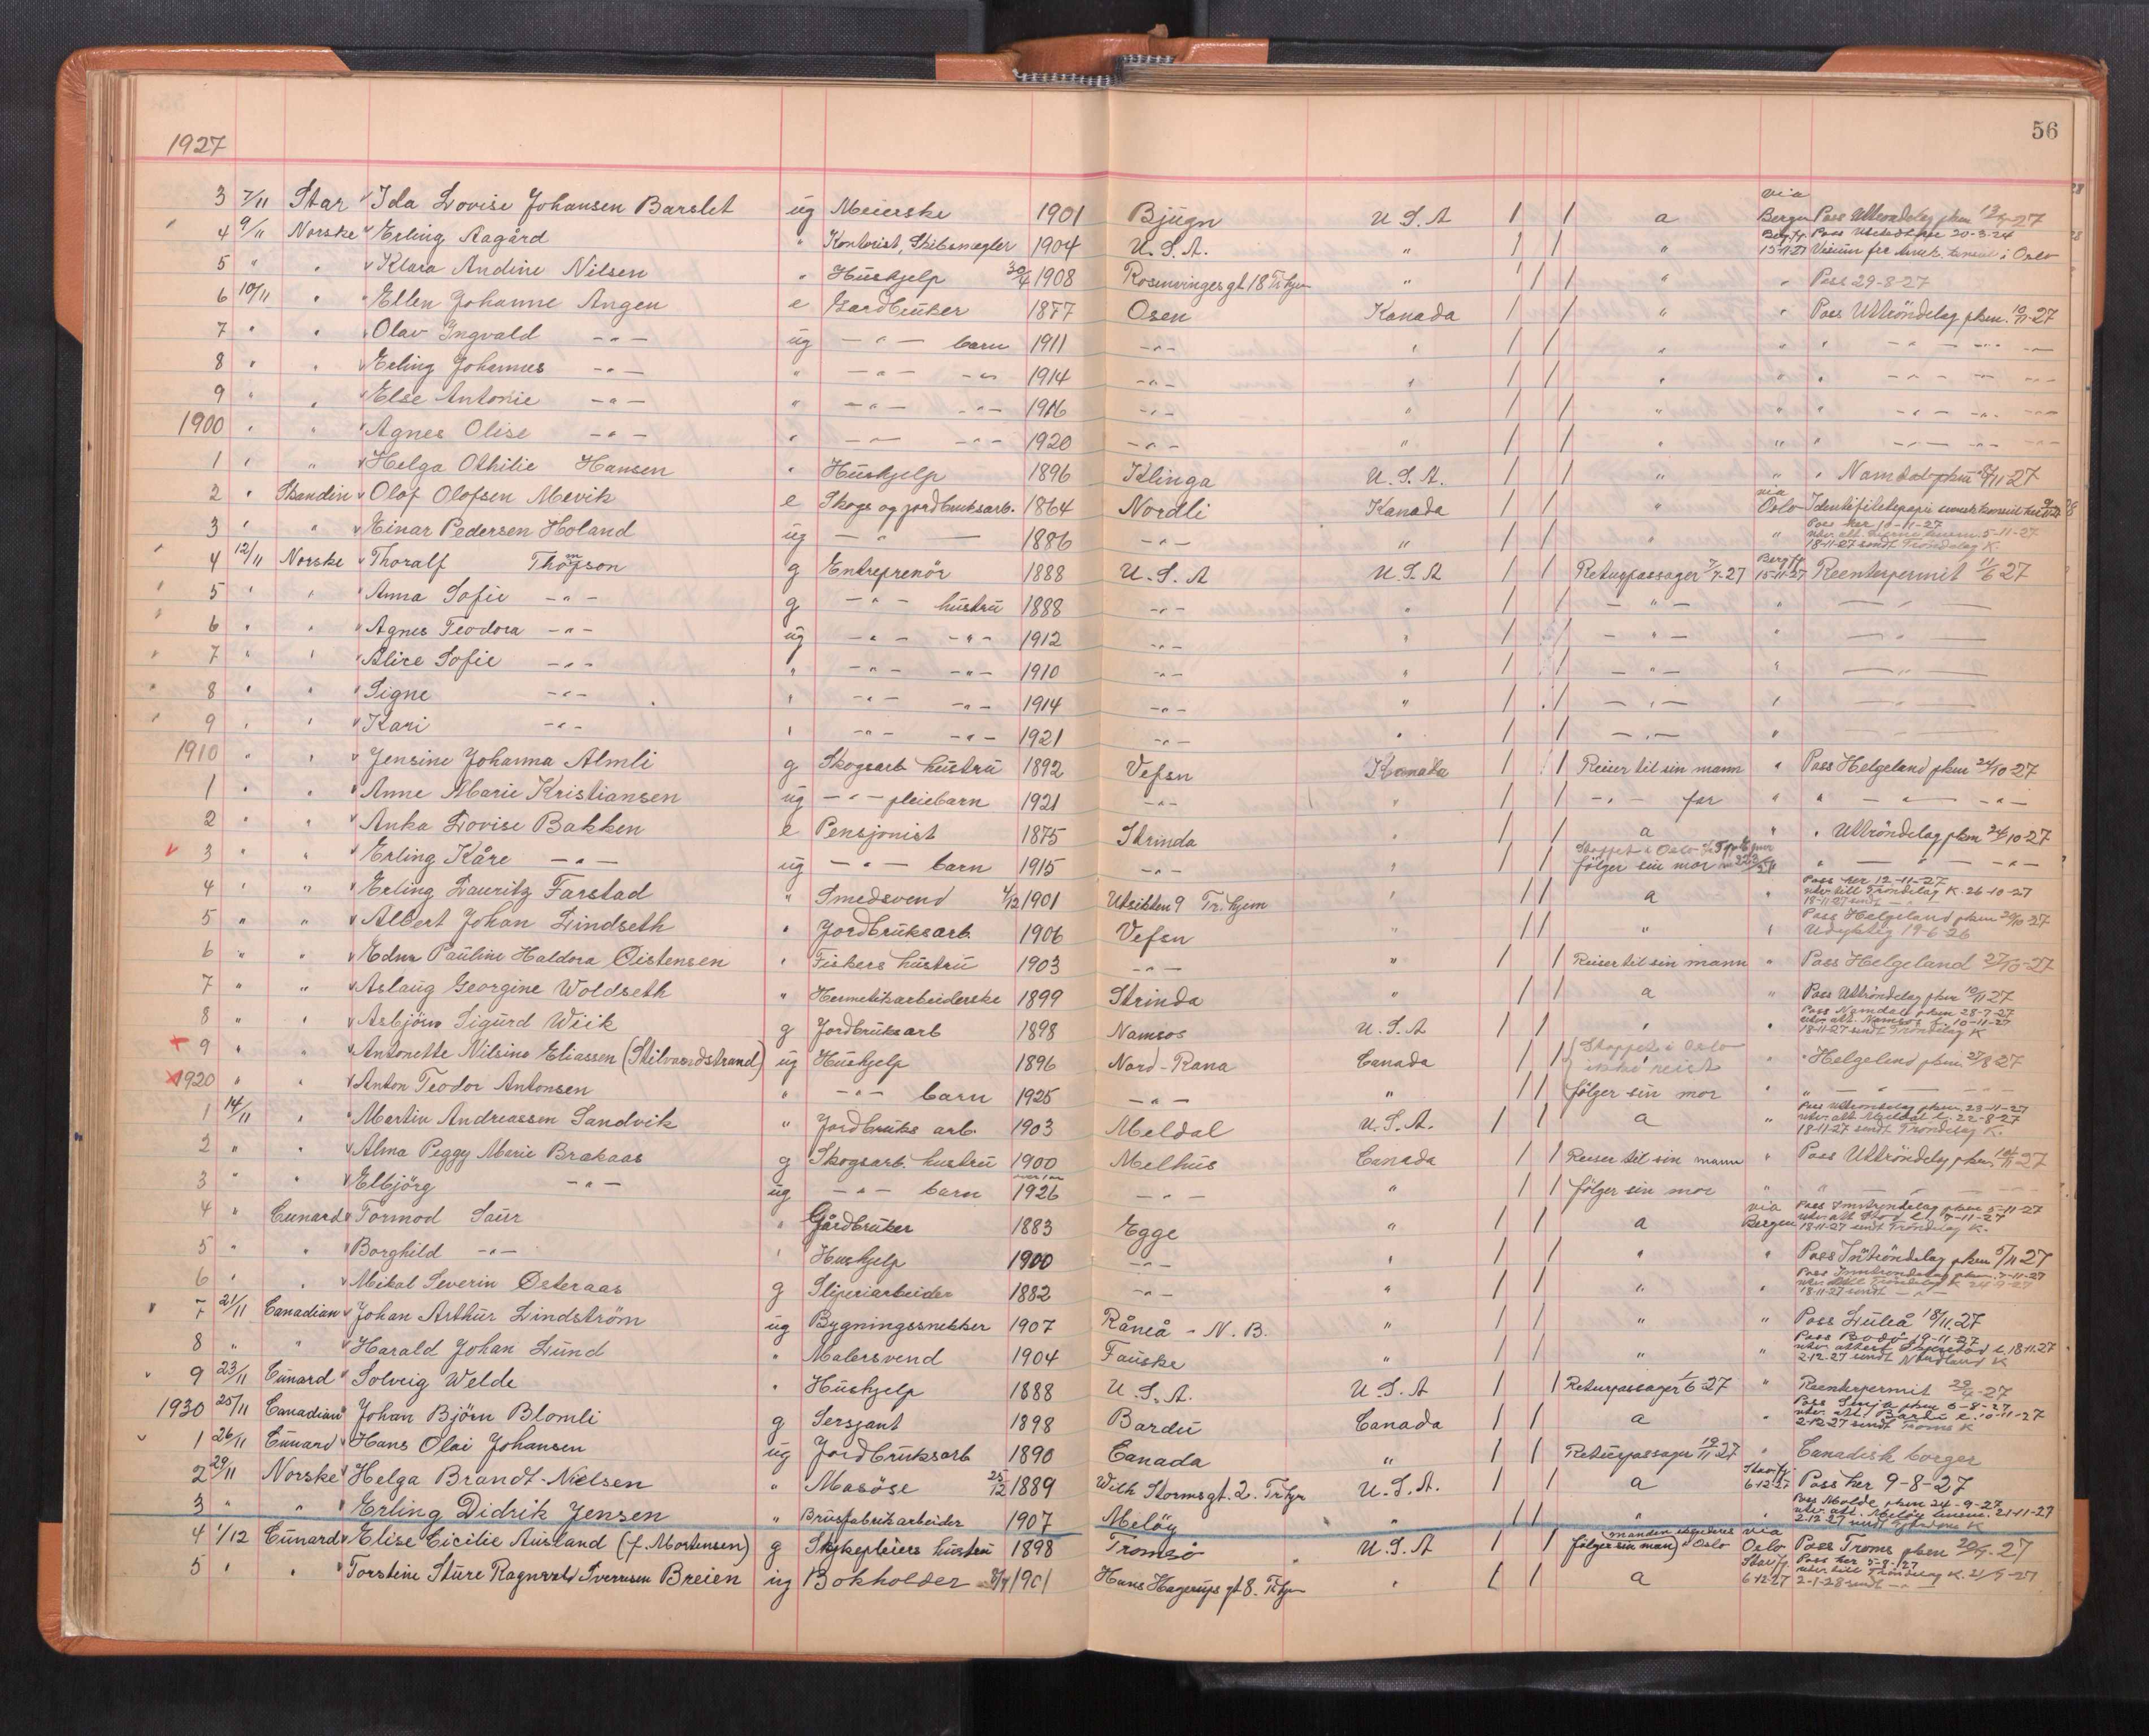 56
1927
3 7/11 Star Ida Lovise Johansen Barslet ug Meierske 1901 Bjugn U.S.A a via Bergen Pass Uttrøndelag pkm 27
4 9/11 Norske Erling Aagård " Kontorist, Skibsmegler 1904 U.S.A. " " 15-11-27 Visum fra Amrk. konsul i Oslo
5 " " Klara Andine Nilsen " Hushjelp 30/4 1908 Rosenvingesgt 18 Tr.hjm " " " Pass 29-8-27
6 10/11 " Ellen Johanne Angen e Gardbruker 1877 Osen Kanada " " Pass Uttröndelag pkm. 10/11-27
7 " " Olav Ingvald -"- ug -"- barn 1911 -"- " " " " -"- -"-
8 " " Erling Johannes -"- " -"- -"- 1914 -"- " " " " -"- -"-
9 " " Else Antonie -"- " -"- -"- 1916 -"- " " " " -"- -"-
1900 " " Agnes Olise -"- " -"- -"- 1920 -"- " " " " -"- -"-
1 " " Helga Othilie Hansen " Hushjelp 1896 Klinga U.S.A. " " " Namdal pkm 8/11 27
2 " Skandin Olof Olofsen Mevik e Skogs og jordbruksarb. 1864 Nordli Kanada " via Oslo
3 " " Einar Pedersen Holand ug -"- 1886 -"- " " " Pass her 10-11-27
18-11-27 sendt Tröndelag K.
4 12/11 Norske Thoralf Thompson g Entreprenör 1888 U.S.A U.S.A Returpassager 7/7-27 Berg.fj. 15-11-27 Reenterpermit 11/6 27
5 " " Anna Sofie -"- g -"- hustru 1888 -"- " -"- " -"-
6 " " Agnes Teodora -"- ug -"- -"- 1912 -"- " -"- " -"-
7 " " Alice Sofie -"- " -"- -"- 1910 -"- " -"- " -"-
8 " " Signe -"- " -"- -"- 1914 -"- " -"- " -"-
9 " " Kari -"- " -"- -"- 1921 -"- " -"- " -"-
1910 " " Jensine Johanna Almli g Skogsarb. hustru 1892 Vefsn Kanada Reiser til sin mann " Pass Helgeland pkm 24/10 27
1 " " Anne Marie Kristiansen ug -"- pleiebarn 1921 -"- " -"- far " " -"- -"-
2 " " Anka Lovise Bakken e Pensjonist 1875 Strinda " a " " Uttröndelag pkm 24/10-27
3 " " Erling Kåre -"- ug -"- barn 1915 -"- " Stoppet i Oslo fölger sin mor " -"- -"-
4 " " Erling Lauritz Farstad " Smedsvend 4/12 1901 Utsikten 9 Tr.hjem " a " Pass her 12-11-27
utvr till Tröndelag K. 26-10-27
18-11-27 sendt -"-
5 " " Albert Johan Lindseth " Jordbruksarb. 1906 Vefsn " " " Pass Helgeland pkm 20/10-27
Udyktig 19-6-26
6 " " Edna Pauline Haldora Öistensen " Fiskers hustru 1903 -"- " Reiser til sin mann " Pass Helgeland 27/10-27
7 " " Aslaug Georgine Woldseth " Hermetikarbeiderske 1899 Strinda " a " Pass Uttröndelag pkm 10/11 27
8 " " Asbjörn Sigurd Wiik g Jordbruksarb 1898 Namsos U.S.A " " Pass Namdal pkm 28-7-27
utvr. att. Namsos l. 10-11-27
18-11-27 sendt Tröndelag K
9 " " Antonette Nilsine Eliassen (Stilvaardstrand) ug Hushjelp 1896 Nord-Rana Canada Stoppet i Oslo ikke reist " " Helgeland pkm 27/8 27
1920 " " Anton Teodor Antonsen " -"- barn 1925 -"- " fölger sin mor " " -"-
1 14/11 " Martin Andreassen Sandvik " Jordbruks arb. 1903 Meldal U.S.A. a " Pass Uttröndelag pkm. 23-11-27
utvr. att. Meldal l. 22-8-27
18-11-27 sendt Tröndelag K.
2 " " Alma Peggy Marie Brakaas g Skogsarb. hustru 1900 Melhus Canada Reiser til sin mann " Pass Uttröndelag pkm 27
3 " " Elbjörg -"- ug -"- barn 1926 -"- " fölger sin mor " "
4 " Cunard Tormod Saur " Gårdbruker 1883 Egge " a via Bergen Pass Inntröndelag pkm 5-11-27
18-11-27 sendt Tröndelag K.
5 " " Borghild -"- " Hushjelp 1900 -"- " " " Pass Inntröndelag pkm 5/11 27
6 " " Mikal Severin Østeraas g Sliperiarbeider 1882 -"- " " " Pass Inntröndelag pkm. 7-11-27
18-11-27 sendt -"-
7 21/11 Canadian Johan Arthur Lindström ug Bygningssnekker 1907 Råneå - N.B. " " " Pass Luleå 18/11.27
8 " " Harald Johan Lund " Malersvend 1904 Fauske " " " Pass Bodö 19-11-27
2-12-27 sendt Nordland K
9 23/11 Cunard Solveig Welde " Hushjelp 1888 U.S.A. U.S.A Returpassager 1/6-27 " Reenterpermit 29/4-27
1930 25/11 Canadian Johan Björn Blomli g Sersjant 1898 Bardu Canada a " Pass Senja pkm 6-8-27
utvr. att. Bardu l. 10-11-27
2-12-27 sendt Troms K
1 26/11 Cunard Hans Olai Johansen ug Jordbruksarb 1890 Canada " Returpassager 19/11 27 " Canadisk borger
2 29/11 Norske Helga Brandt-Nielsen " Masöse 25/12 1889 Wilh Stormsgt. 2. Tr.hjm U.S.A. a Stav.fj. 6-12-27 Pass her 9-8-27
3 " " Erling Didrik Jensen " Brusfabrikarbeider 1907 Melöy " " " Pass Molde pkm 24-9-27
utvr. att. Melöy 21-11-27
4 1/12 Cunard Elise Cicilie Ausland (f. Mortensen) g Sykepleiers hustru 1898 Tromsö U.S.A fölger sin man via Oslo Pass Troms pkm 20/9-27
5 " " Torstine Sture Ragnvald Sverresen Breien ug Bokholder 1901 Hans Hagerups gt 8. Tr.hjm " a Stav.fj. 6-12-27 Pass her 5-8-27
2-1-28 sendt -"-